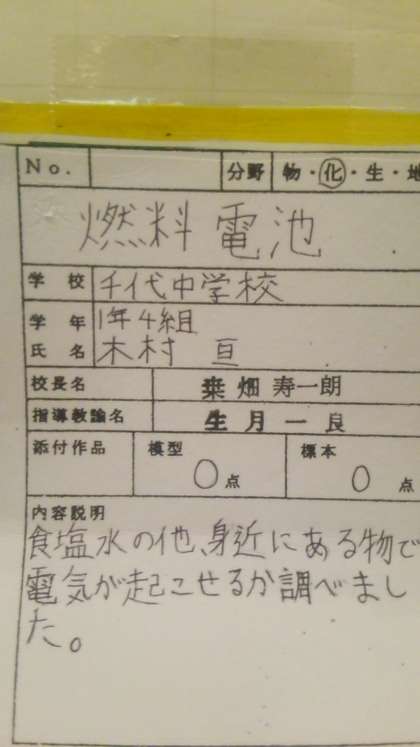 No. 分野 物・化・生・地
燃料電池
学校 千代中学校
学年 1年4組
氏名 木村 亘
校長名 桒畑 寿一朗
指導教諭名 生月 一良
添付作品 模型 0点 標本 0点
内容説明
食塩水の他、身近にある物で
電気が起こせるか調べまし
た。